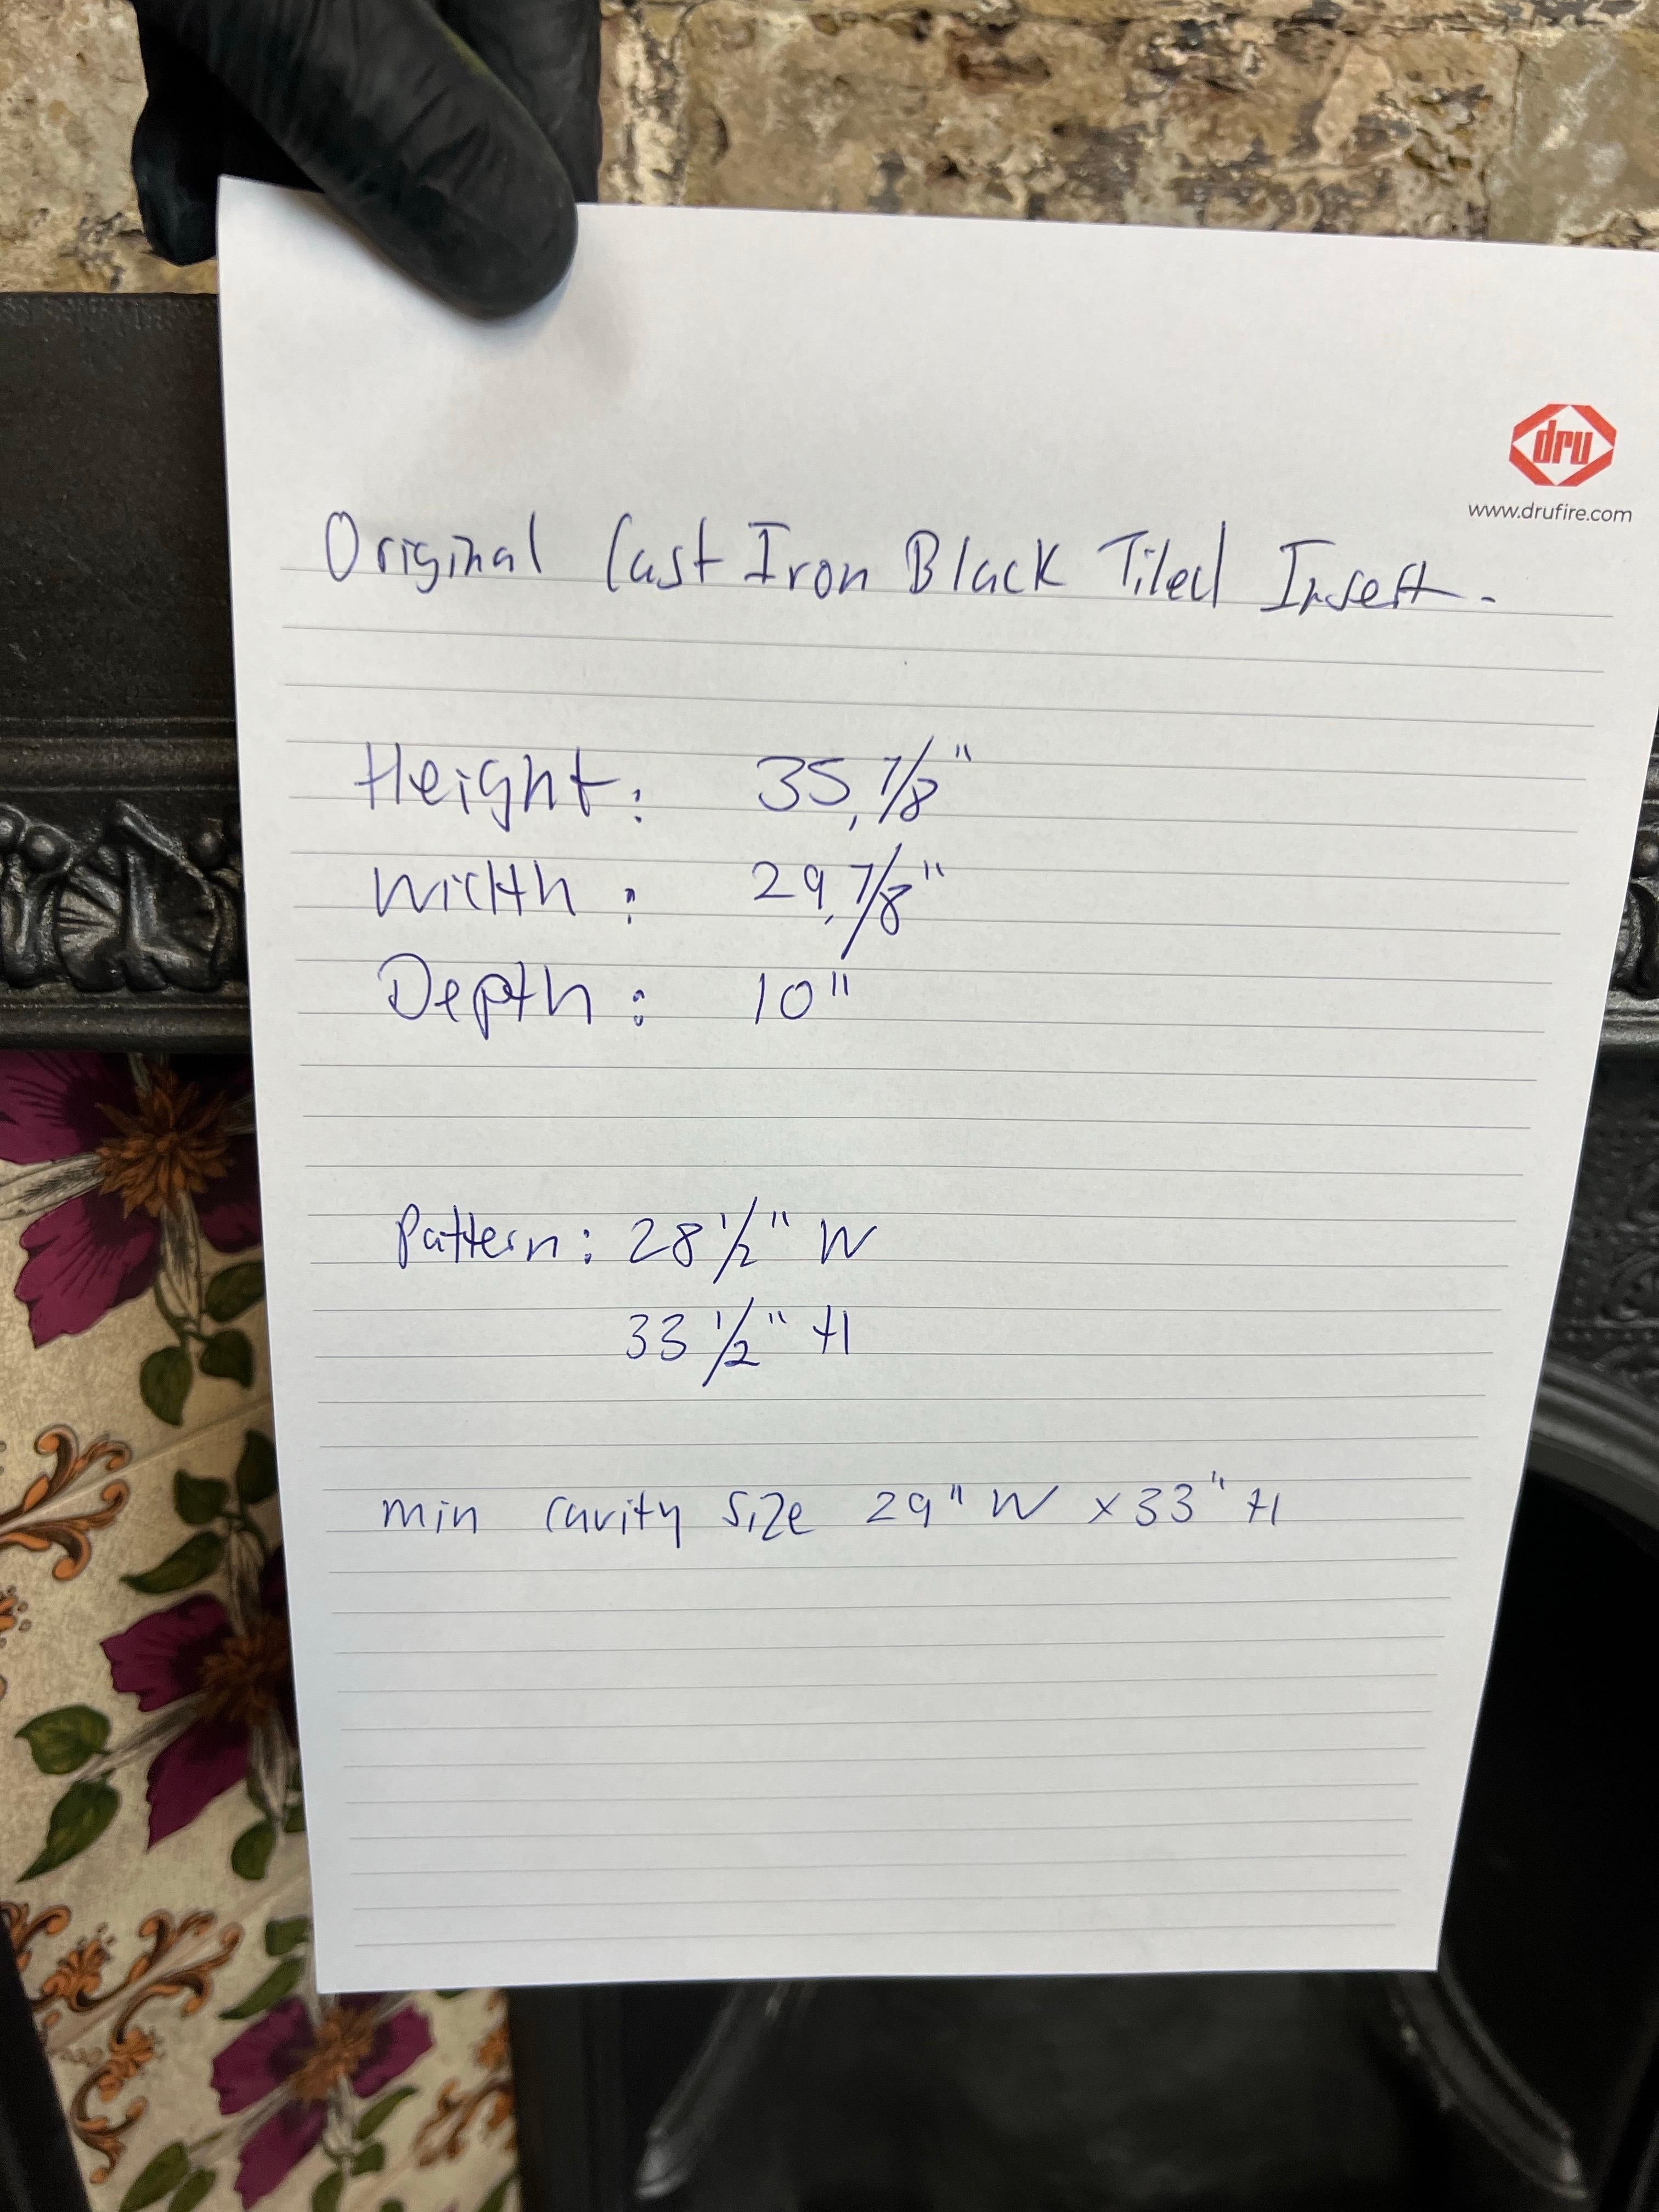 dru
www.drufire.com
Original Cast Iron Black Tiled Insert.
Height: 35,7/8"
Width: 29,7/8"
Depth: 10"
Pattern: 28 1/2" W
33 1/2" H
min cavity size 29" W x 33" H